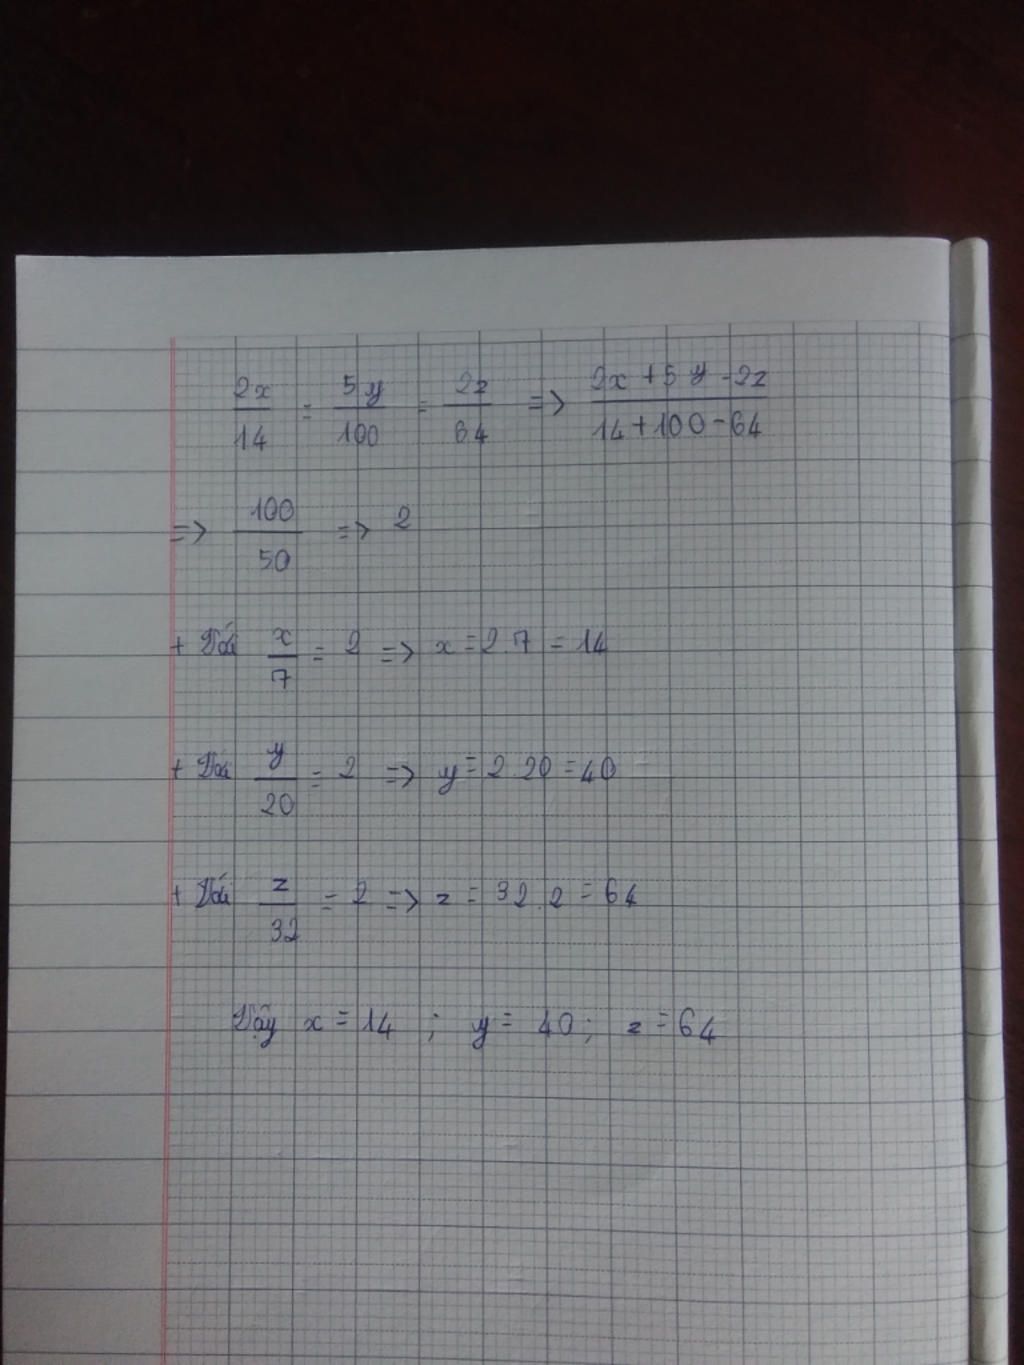 2x/14 = 5y/100 = 2z/64 => 2x + 5y - 2z/14 + 100 - 64
=> 100/50 => 2
+ Với x/7 = 2 => x = 2.7 = 14
+ Với y/20 = 2 => y = 2.20 = 40
+ Với z/32 = 2 => z = 32.2 = 64
Vậy x = 14 ; y = 40 ; z = 64